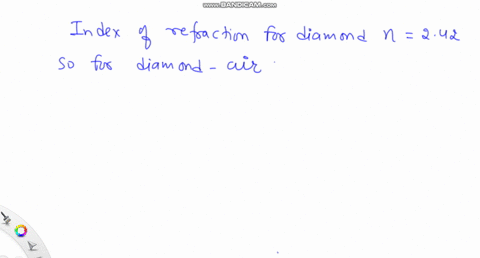 WWW.BANDICAM.COM
Index of refraction for diamond n = 2.42
so for diamond - air